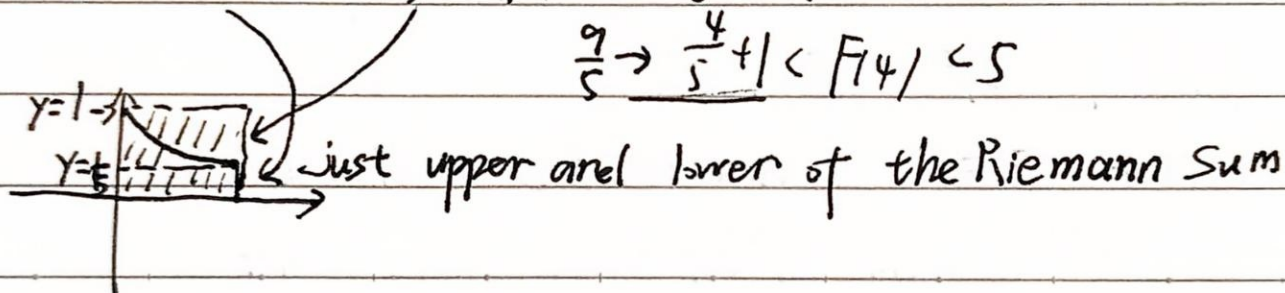 9/5 → 4/5 + 1 < F(4) < 5
y=1
y=1/5
just upper and lower of the Riemann Sum